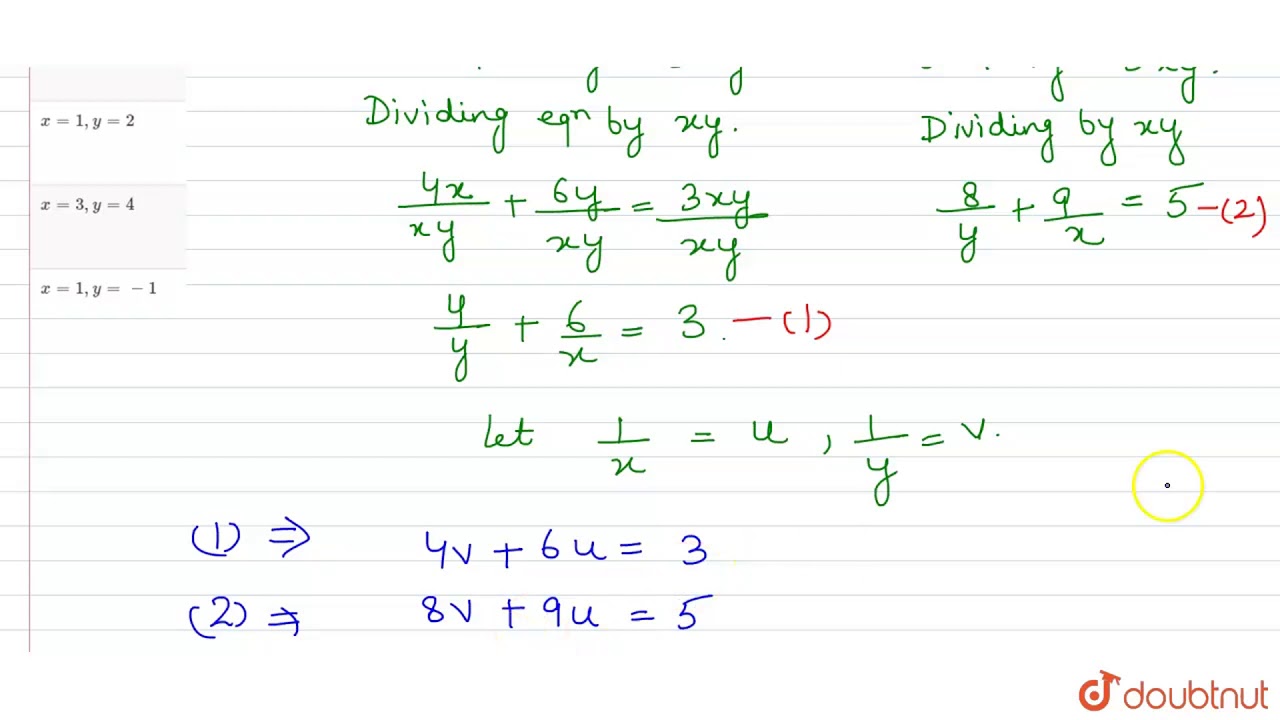 x = 1, y = 2
x = 3, y = 4
x = 1, y = -1
Dividing eqn by xy.
4x/xy + 6y/xy = 3xy/xy
4/y + 6/x = 3. -(1)
Dividing by xy
8/y + 9/x = 5 -(2)
let 1/x = u, 1/y = v.
(1) ⇒ 4v + 6u = 3
(2) ⇒ 8v + 9u = 5
doubtnut